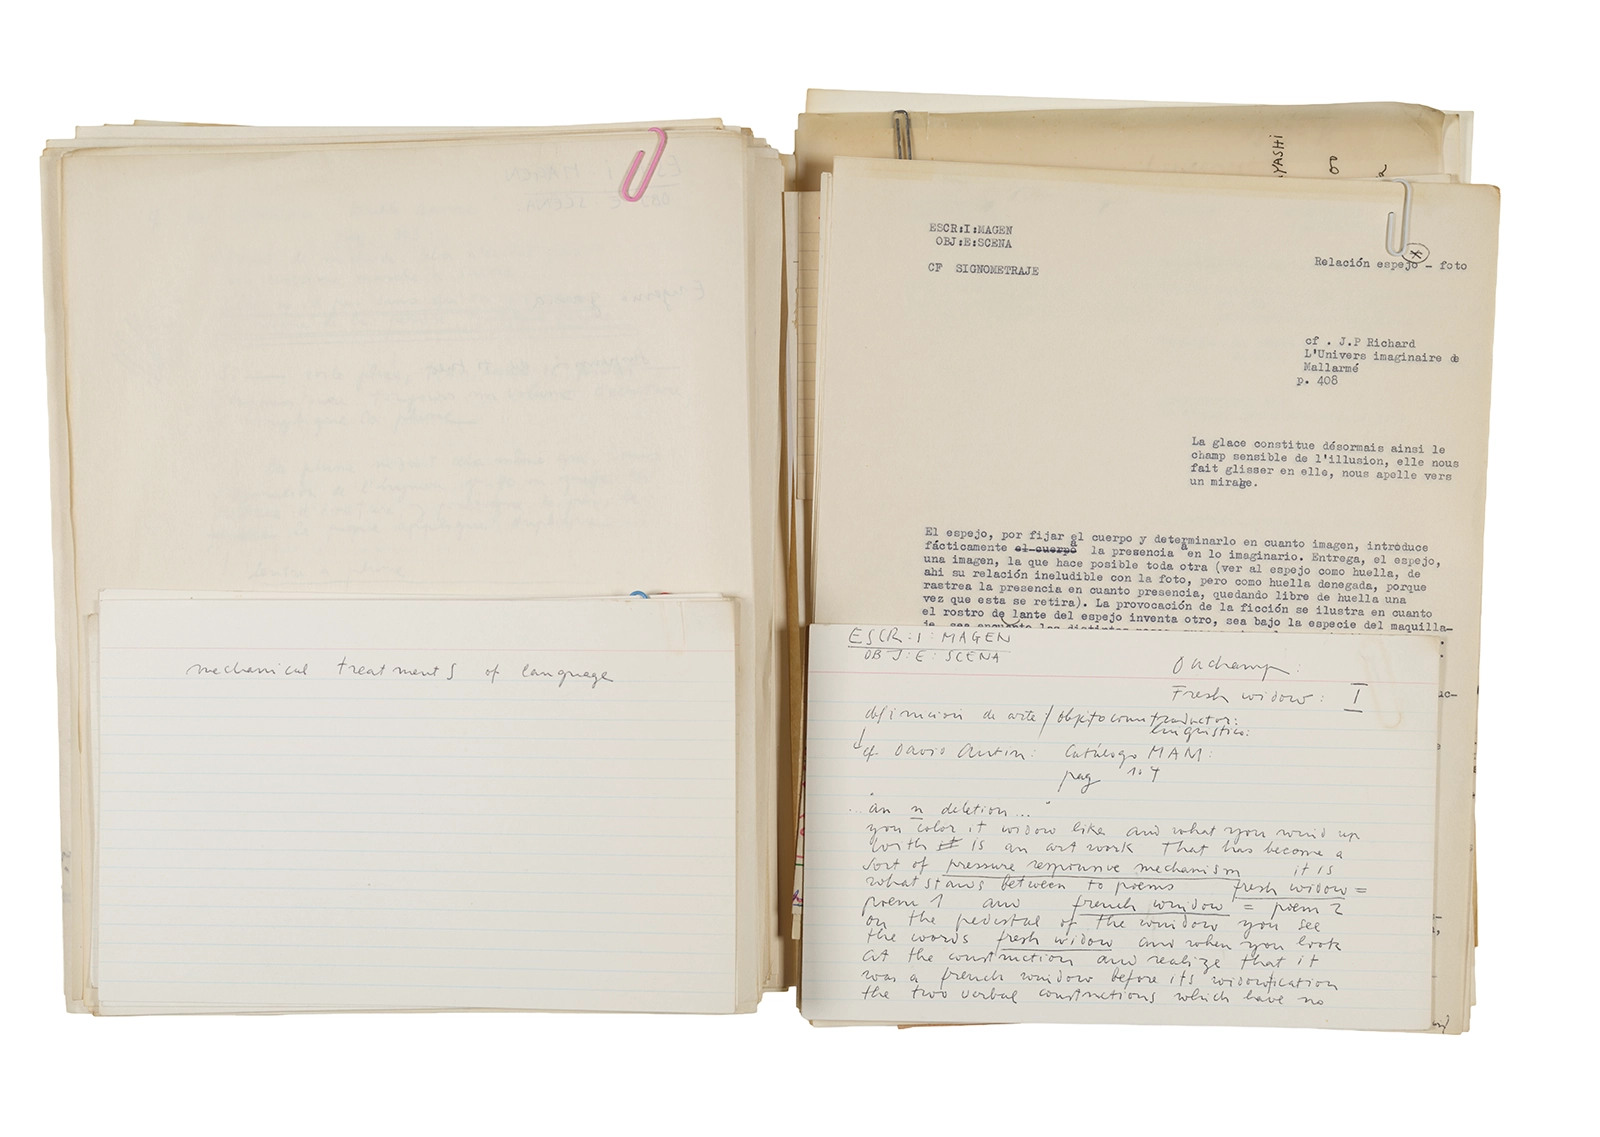 mechanical treatments of language
YASHI
8
2
ESCR:I:MAGEN
OBJ:E:SCENA
CF SIGNOMETRAJE
Relación espejo - foto
cf . J.P Richard
L'Univers imaginaire de
Mallarmé
p. 408
La glace constitue désormais ainsi le
champ sensible de l'illusion, elle nous
fait glisser en elle, nous apelle vers
un mirage.
El espejo, por fijar el cuerpo y determinarlo en cuanto imagen, introduce
fácticamente el cuerpo a la presencia en lo imaginario. Entrega, el espejo,
una imagen, la que hace posible toda otra (ver al espejo como huella, de
ahi su relación ineludible con la foto, pero como huella denegada, porque
rastrea la presencia en cuanto presencia, quedando libre de huella una
vez que esta se retira). La provocación de la ficción se ilustra en cuanto
el rostro de lante del espejo inventa otro, sea bajo la especie del maquilla-
ESCR:I:MAGEN
OBJ:E:SCENA
Duchamp:
Fresh widow: I
definición de arte / objeto como traductor:
lingüístico:
cf David Antin: Catálogo MAM:
pag 107
"... an n deletion..."
you color it widow like and what you wind up
with # is an art work that has become a
sort of pressure responsive mechanism it is
what stands between to poems fresh widow =
poem 1 and french window = poem 2
on the pedestal of the window you see
the words fresh widow and when you look
at the construction and realize that it
was a french window before its widowfication
the two verbal constructions which have no